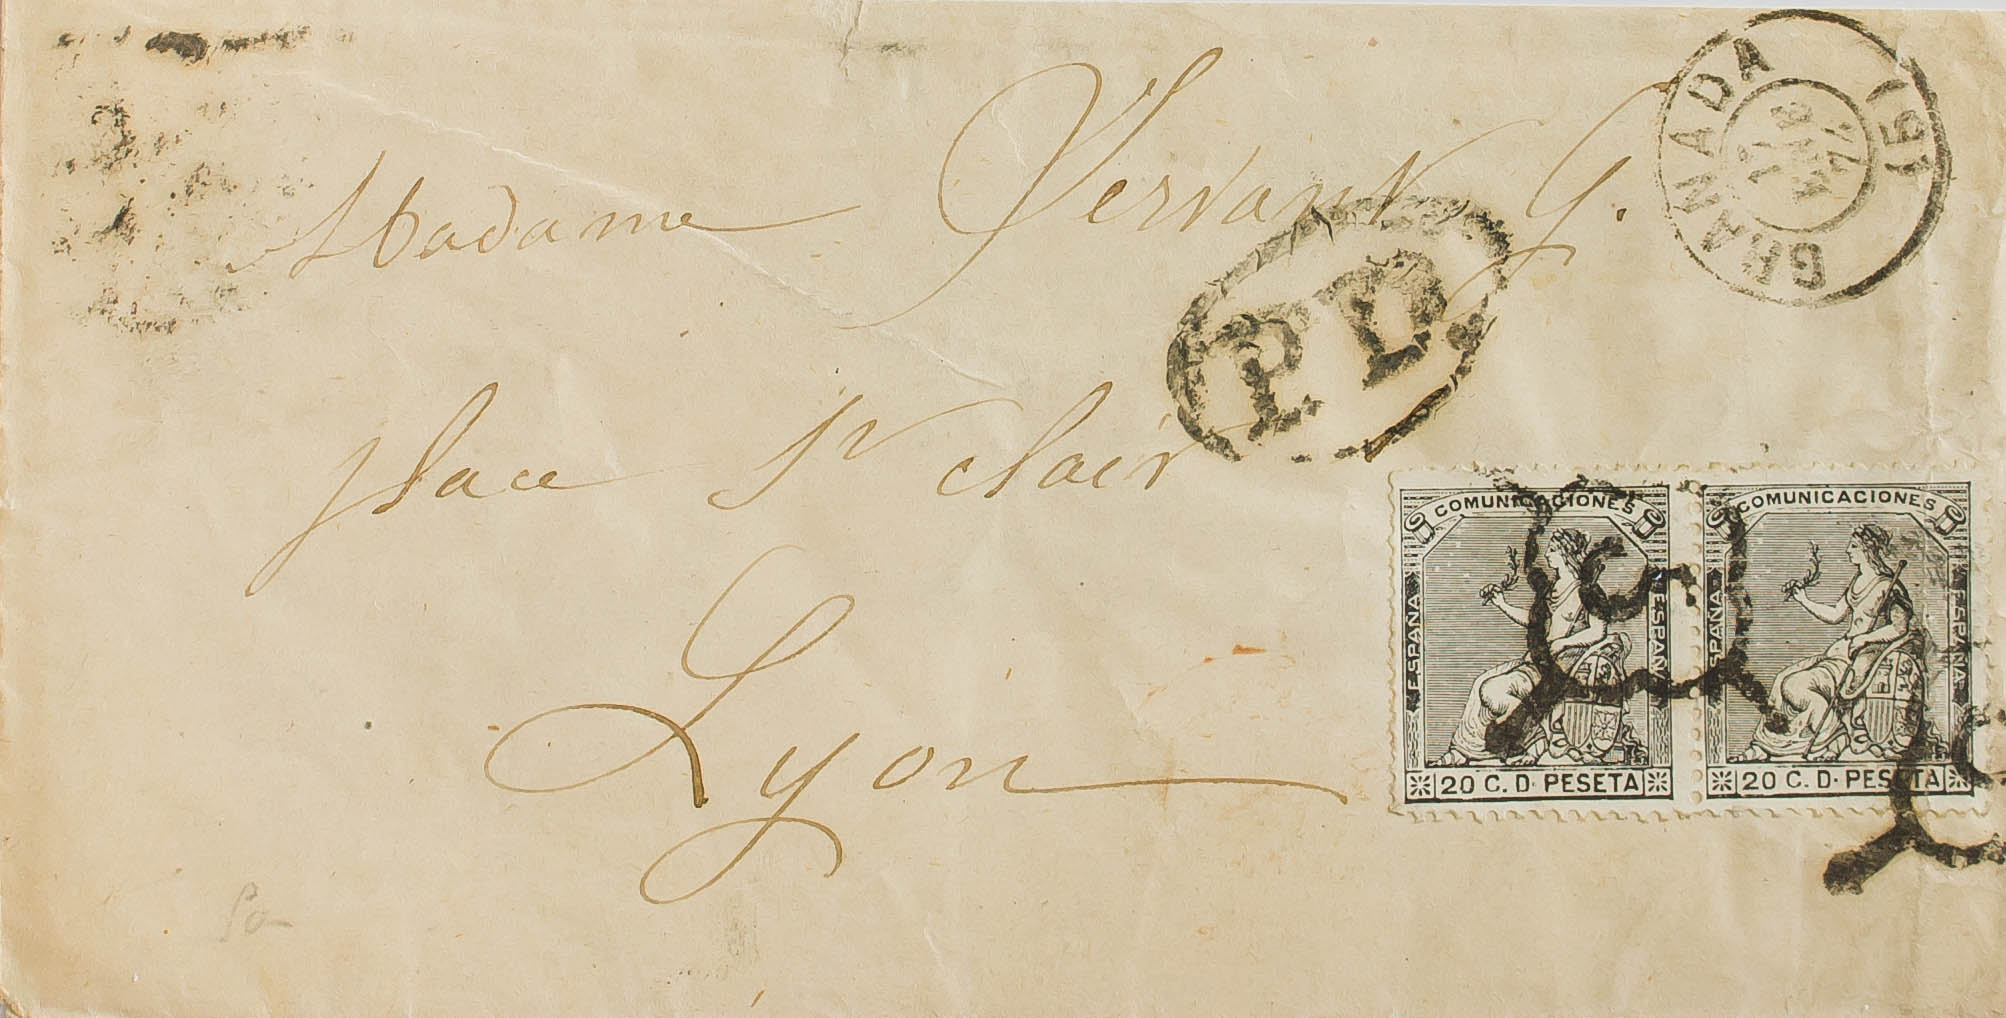 GRANADA
17
MAR
74
(15)
Madame Servant G.
P.D.
place St clair
Lyon
COMUNICACIONES
ESPAÑA
ESPAÑA
20 C. D. PESETA
COMUNICACIONES
ESPAÑA
ESPAÑA
20 C. D. PESETA